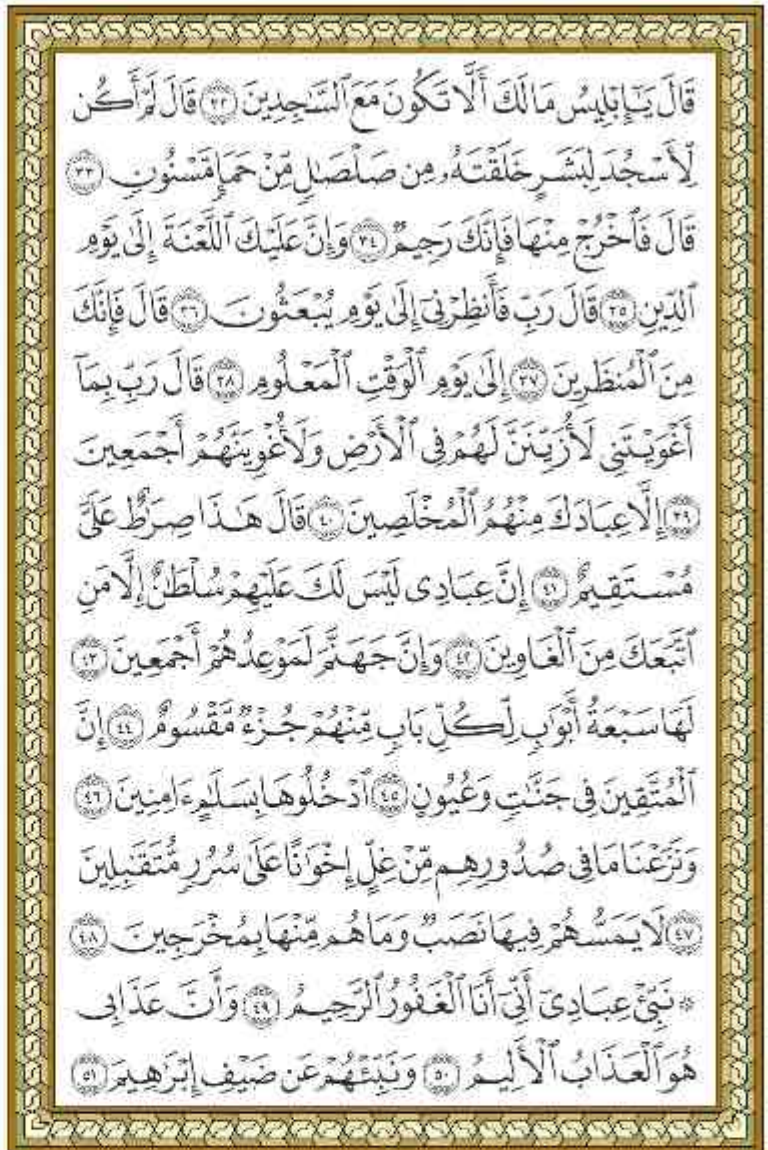 قَالَ يَـٰٓإِبْلِيسُ مَا لَكَ أَلَّا تَكُونَ مَعَ ٱلسَّـٰجِدِينَ ٣٢ قَالَ لَمْ أَكُن
لِّأَسْجُدَ لِبَشَرٍ خَلَقْتَهُۥ مِن صَلْصَـٰلٍ مِّنْ حَمَإٍ مَّسْنُونٍ ٣٣
قَالَ فَٱخْرُجْ مِنْهَا فَإِنَّكَ رَجِيمٌ ٣٤ وَإِنَّ عَلَيْكَ ٱللَّعْنَةَ إِلَىٰ يَوْمِ
ٱلدِّينِ ٣٥ قَالَ رَبِّ فَأَنظِرْنِىٓ إِلَىٰ يَوْمِ يُبْعَثُونَ ٣٦ قَالَ فَإِنَّكَ
مِنَ ٱلْمُنظَرِينَ ٣٧ إِلَىٰ يَوْمِ ٱلْوَقْتِ ٱلْمَعْلُومِ ٣٨ قَالَ رَبِّ بِمَآ
أَغْوَيْتَنِى لَأُزَيِّنَنَّ لَهُمْ فِى ٱلْأَرْضِ وَلَأُغْوِيَنَّهُمْ أَجْمَعِينَ
٣٩ إِلَّا عِبَادَكَ مِنْهُمُ ٱلْمُخْلَصِينَ ٤٠ قَالَ هَـٰذَا صِرَٰطٌ عَلَىَّ
مُسْتَقِيمٌ ٤١ إِنَّ عِبَادِى لَيْسَ لَكَ عَلَيْهِمْ سُلْطَـٰنٌ إِلَّا مَنِ
ٱتَّبَعَكَ مِنَ ٱلْغَاوِينَ ٤٢ وَإِنَّ جَهَنَّمَ لَمَوْعِدُهُمْ أَجْمَعِينَ ٤٣
لَهَا سَبْعَةُ أَبْوَٰبٍ لِّكُلِّ بَابٍ مِّنْهُمْ جُزْءٌ مَّقْسُومٌ ٤٤ إِنَّ
ٱلْمُتَّقِينَ فِى جَنَّـٰتٍ وَعُيُونٍ ٤٥ ٱدْخُلُوهَا بِسَلَـٰمٍ ءَامِنِينَ ٤٦
وَنَزَعْنَا مَا فِى صُدُورِهِم مِّنْ غِلٍّ إِخْوَٰنًا عَلَىٰ سُرُرٍ مُّتَقَـٰبِلِينَ
٤٧ لَا يَمَسُّهُمْ فِيهَا نَصَبٌ وَمَا هُم مِّنْهَا بِمُخْرَجِينَ ٤٨
۞ نَبِّئْ عِبَادِىٓ أَنِّىٓ أَنَا ٱلْغَفُورُ ٱلرَّحِيمُ ٤٩ وَأَنَّ عَذَابِى
هُوَ ٱلْعَذَابُ ٱلْأَلِيمُ ٥٠ وَنَبِّئْهُمْ عَن ضَيْفِ إِبْرَٰهِيمَ ٥١